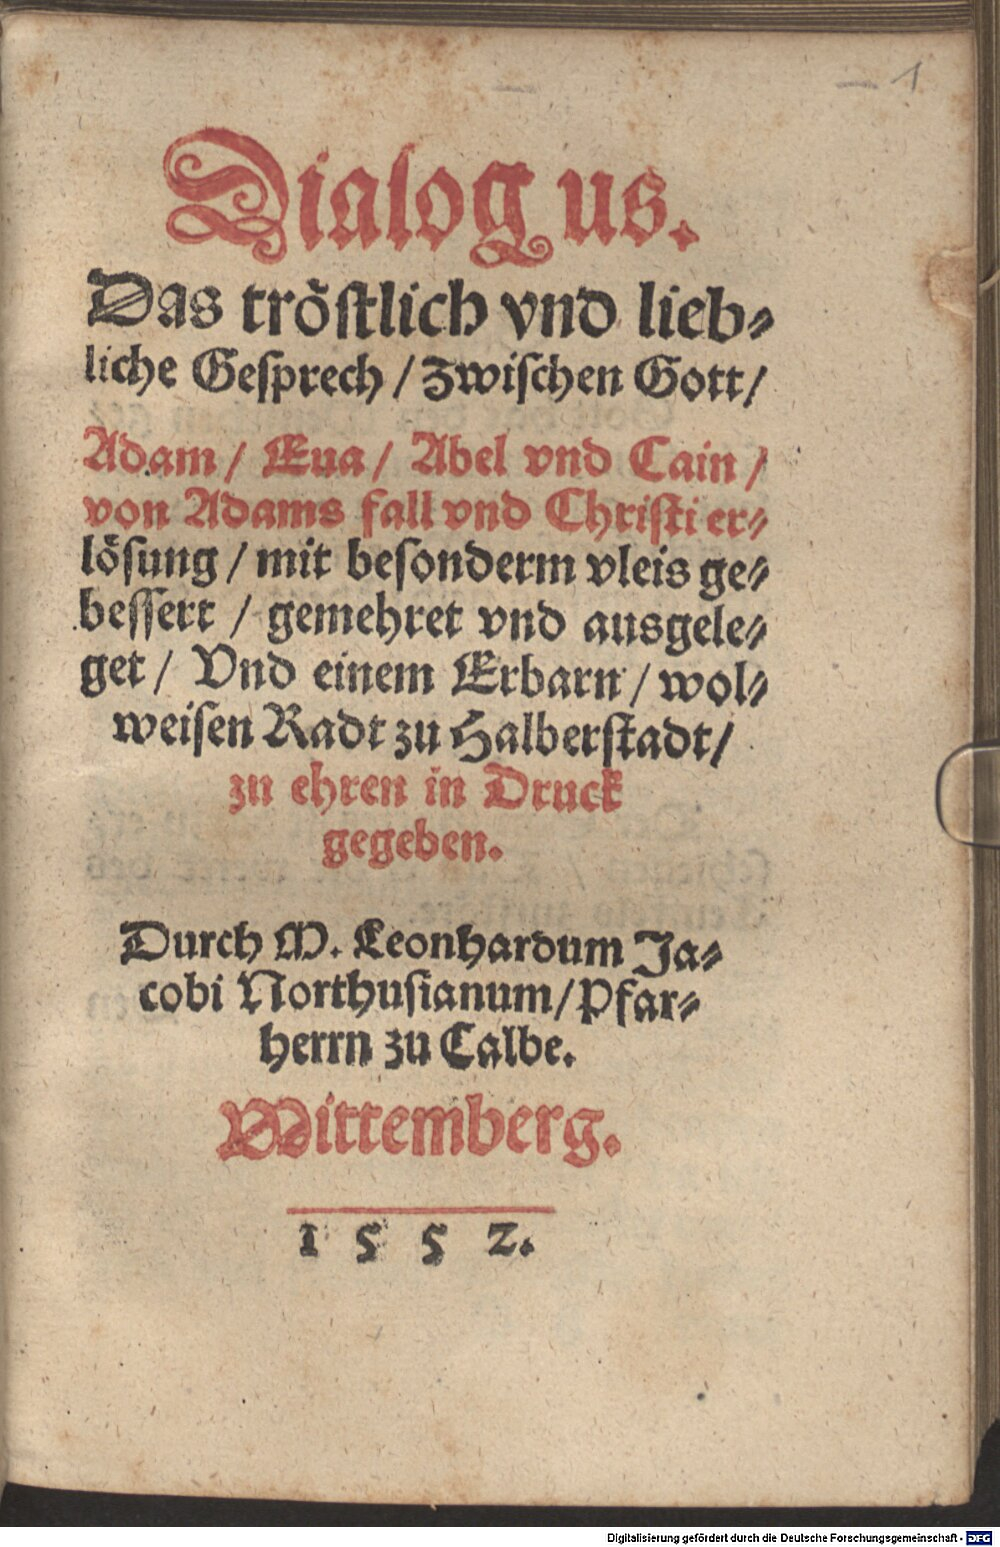 1
Dialogus.
Das tröstlich vnd lieb-
liche Gesprech / zwischen Gott /
Adam / Eua / Abel vnd Cain /
von Adams fall vnd Christi er-
lösung / mit besonderm vleis ge-
bessert / gemehret vnd ausgele-
get / Vnd einem Erbarn / wol-
weisen Radt zu Halberstadt /
zu ehren in Druck
gegeben.
Durch M. Leonhardum Ja-
cobi Northusianum / Pfar-
herrn zu Calbe.
Wittemberg.
1552.
Digitalisierung gefördert durch die Deutsche Forschungsgemeinschaft - DFG